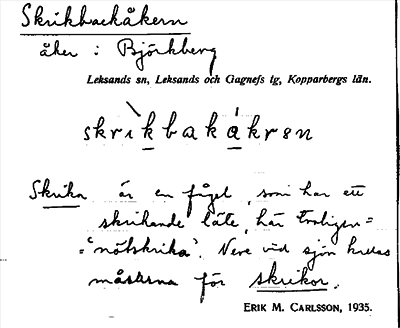 Skrikbackåkern
åker : Björkberg
Leksands sn, Leksands och Gagnefs tg, Kopparbergs län.
skrikbakåkren
Skrika är en fågel, som har ett
skrikande läte, här troligen =
= "nötskrika". Nere vid sjön kallas
måsarna för skrikor.
ERIK M. CARLSSON, 1935.